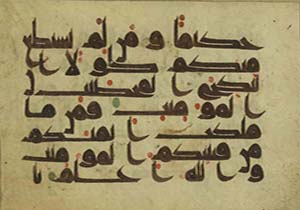 حكيما و من لم يستطع
منكم طولا ا ن
ينكح ا لمحصنت
ا لمومنت فمن ما
ملكت ا يمنكم
من فتيتكم ا لمومنت
و ا لله ا علم با